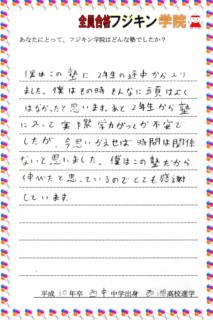 全員合格フジキン学院
あなたにとって、フジキン学院はどんな塾でしたか？
僕はこの塾に2年生の途中から入り
ました。僕はその時そんなに頭はよく
はなかったと思います。あと2年生から塾
に入って実際学力がつくか不安で
したが、今思いかえせば時間は関係
ないと思いました。僕はこの塾だから
伸びたと思っているのでとても感謝
しています。
平成 年卒 中学出身 高校進学